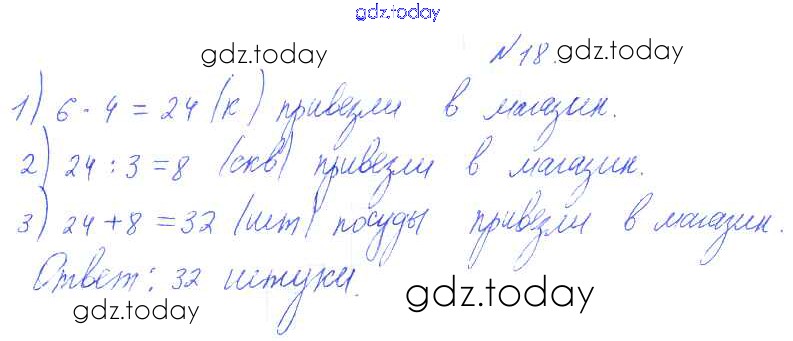 gdz.today
gdz.today
№18.
1) 6 · 4 = 24 (к) привезли в магазин.
gdz.today
2) 24 : 3 = 8 (скв) привезли в магазин.
3) 24 + 8 = 32 (шт) посуды привезли в магазин.
Ответ: 32 штуки.
gdz.today
gdz.today